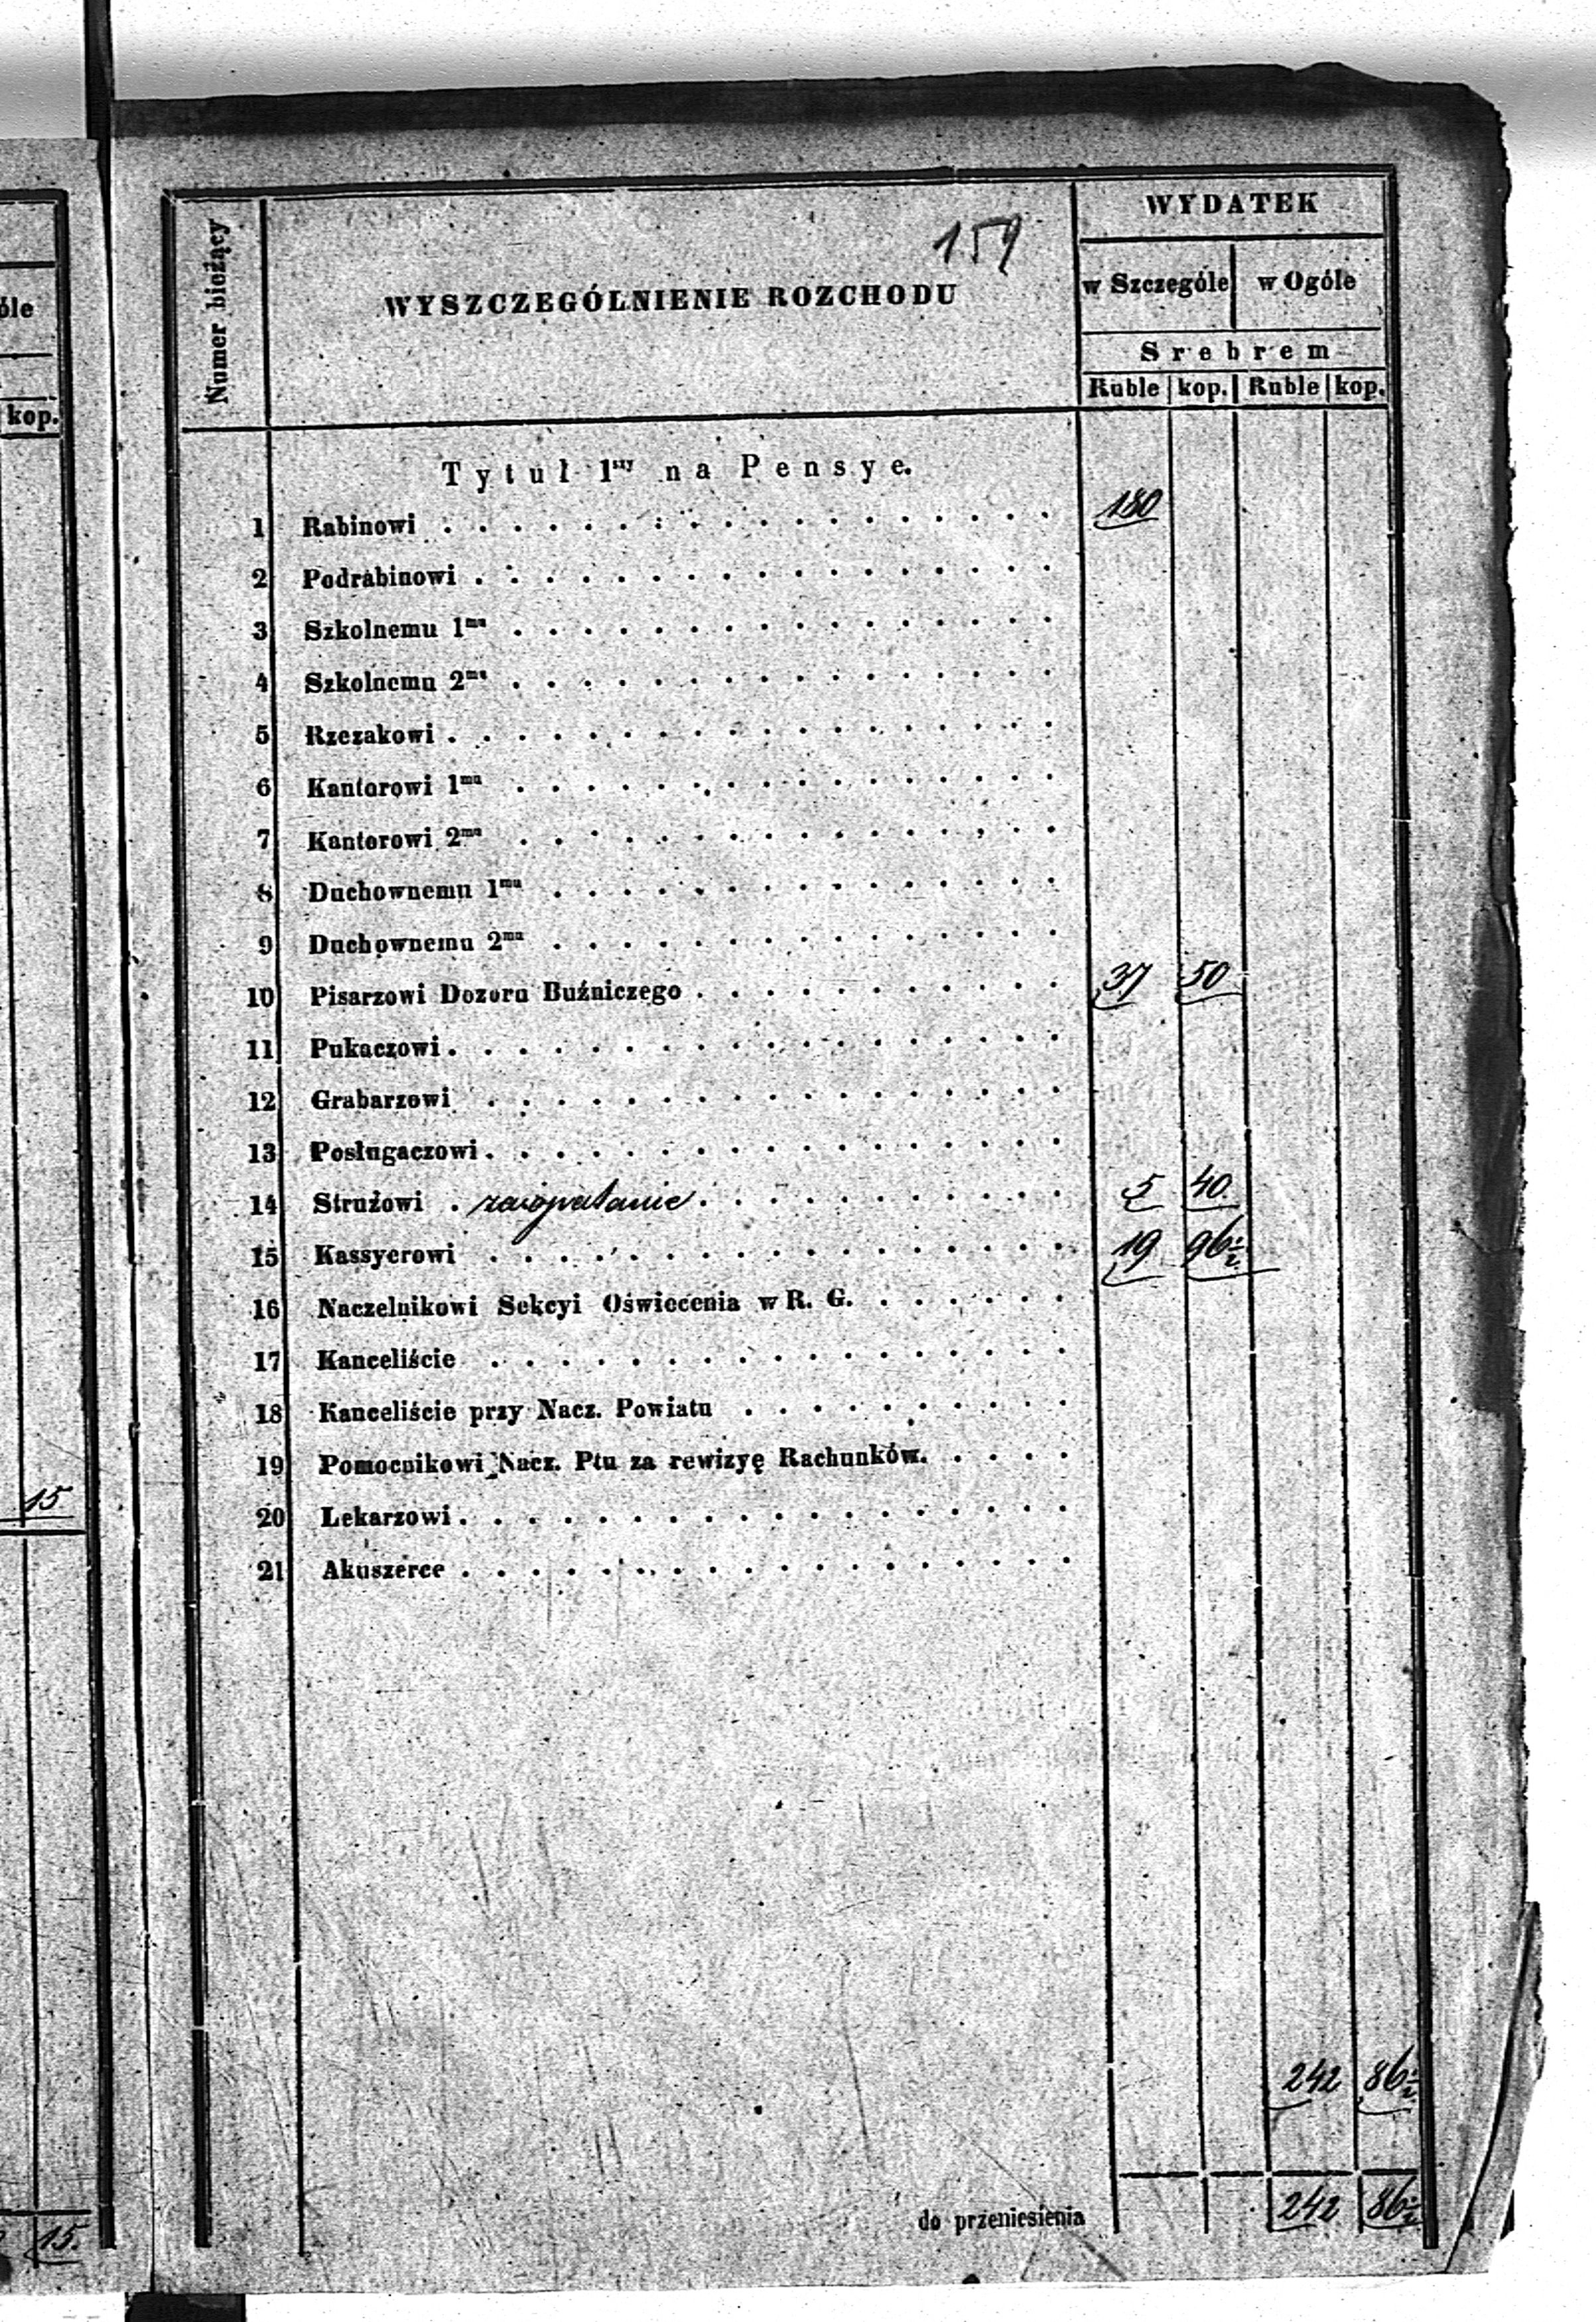 óle
kop.
15
15.
159
Numer bieżący
WYSZCZEGÓLNIENIE ROZCHODU
WYDATEK
w Szczególe w Ogóle
Srebrem
Ruble kop. Ruble kop.
Tytuł 1szy na Pensye.
1 Rabinowi 180
2 Podrabinowi
3 Szkolnemu 1mu
4 Szkolnemu 2mu
5 Rzezakowi
6 Kantorowi 1mu
7 Kantorowi 2mu
8 Duchownemu 1mu
9 Duchownemu 2mu
10 Pisarzowi Dozoru Buźniczego 37 50
11 Pukaczowi
12 Grabarzowi
13 Posługaczowi
14 Strużowi 5 40
15 Kassyerowi 19 96½
16 Naczelnikowi Sekcyi Oświecenia w R. G.
17 Kanceliście
18 Kanceliście przy Nacz. Powiatu
19 Pomocnikowi Nacz. Ptu za rewizyę Rachunków.
20 Lekarzowi
21 Akuszerce
242 86½
do przeniesienia 242 86½